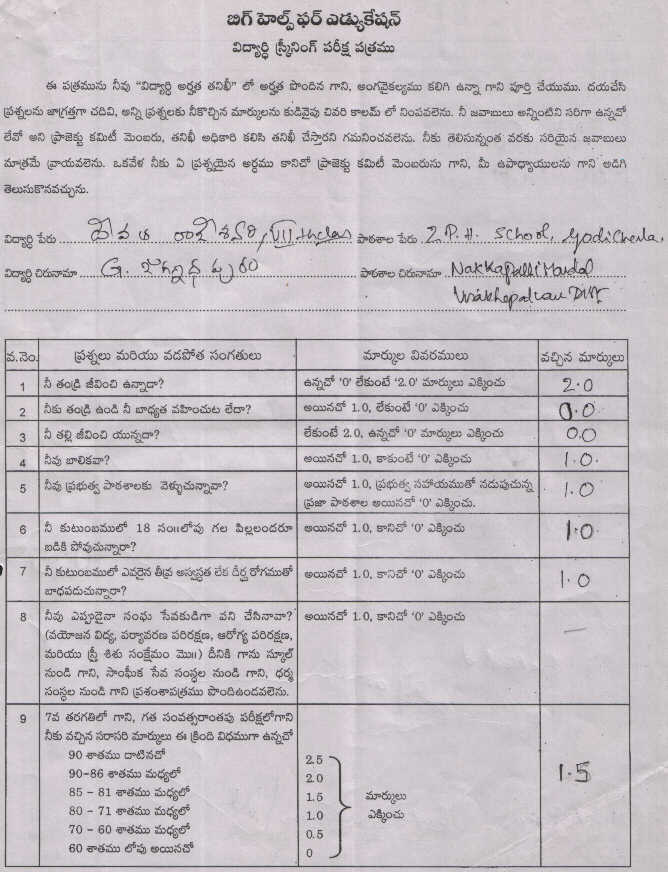 బిగ్ హెల్ప్ ఫర్ ఎడ్యుకేషన్
విద్యార్ధి స్క్రీనింగ్ పరీక్ష పత్రము
ఈ పత్రమును నీవు "విద్యార్ధి అర్హత తనిఖీ" లో అర్హత పొందిన గాని, అంగవైకల్యము కలిగి ఉన్నా గాని పూర్తి చేయుము. దయచేసి
ప్రశ్నలను జాగ్రత్తగా చదివి, అన్ని ప్రశ్నలకు నీకొచ్చిన మార్కులను కుడివైపు చివరి కాలమ్ లో నింపవలెను. నీ జవాబులు అన్నింటిని సరిగా ఉన్నచో
లేవో అని ప్రాజెక్టు కమిటీ మెంబరు, తనిఖీ అధికారి కలిసి తనిఖీ చేస్తారని గమనించవలెను. నీకు తెలిసున్నంత వరకు సరియైన జవాబులు
మాత్రమే వ్రాయవలెను. ఒకవేళ నీకు ఏ ప్రశ్నయైన అర్ధము కానిచో ప్రాజెక్టు కమిటీ మెంబరును గాని, మీ ఉపాధ్యాయులను గాని అడిగి
తెలుసుకొనవచ్చును.
విద్యార్ధి పేరు VII th class పాఠశాల పేరు Z.P.H. School, Godicherla,
విద్యార్ధి చిరునామా G. జగన్నాధపురం పాఠశాల చిరునామా Nakkapalli Mandal
Visakhapatnam Dist
వ.నెం. ప్రశ్నలు మరియు వడపోత సంగతులు మార్కుల వివరములు వచ్చిన మార్కులు
1 నీ తండ్రి జీవించి ఉన్నాడా? ఉన్నచో '0' లేకుంటే '2.0' మార్కులు ఎక్కించు 2.0
2 నీకు తండ్రి ఉండి నీ బాధ్యత వహించుట లేదా? అయినచో 1.0, లేకుంటే '0' ఎక్కించు 0.0
3 నీ తల్లి జీవించి యున్నదా? లేకుంటే 2.0, ఉన్నచో '0' మార్కులు ఎక్కించు 0.0
4 నీవు బాలికవా? అయినచో 1.0, కాకుంటే '0' ఎక్కించు 1.0.
5 నీవు ప్రభుత్వ పాఠశాలకు వెళ్ళుచున్నావా? అయినచో 1.0, ప్రభుత్వ సహాయముతో నడుపుచున్న 1.0
ప్రజా పాఠశాల అయినచో '0' ఎక్కించు.
6 నీ కుటుంబములో 18 సం॥లోపు గల పిల్లలందరూ అయినచో 1.0, కానిచో '0' ఎక్కించు 1.0
బడికి పోవుచున్నారా?
7 నీ కుటుంబములో ఎవరైన తీవ్ర అస్వస్థత లేక దీర్ఘ రోగముతో అయినచో 1.0, కానిచో '0' ఎక్కించు 1.0
బాధపడుచున్నారా?
8 నీవు ఎప్పుడైనా సంఘ సేవకుడిగా పని చేసినావా? అయినచో 1.0, కానిచో '0' ఎక్కించు —
(వయోజన విద్య, పర్యావరణ పరిరక్షణ, ఆరోగ్య పరిరక్షణ,
మరియు స్త్రీ శిశు సంక్షేమం మొ॥) దీనికి గాను స్కూల్
నుండి గాని, సాంఘీక సేవ సంస్థల నుండి గాని, ధర్మ
సంస్థల నుండి గాని ప్రశంసాపత్రము పొందిఉండవలెను.
9 7వ తరగతిలో గాని, గత సంవత్సరాంతపు పరీక్షలోగాని
నీకు వచ్చిన సరాసరి మార్కులు ఈ క్రింది విధముగా ఉన్నచో
90 శాతము దాటినచో 2.5
90-86 శాతము మధ్యలో 2.0 1.5
85 - 81 శాతము మధ్యలో 1.5 మార్కులు
80 - 71 శాతము మధ్యలో 1.0 ఎక్కించు
70 - 60 శాతము మధ్యలో 0.5
60 శాతము లోపు అయినచో 0